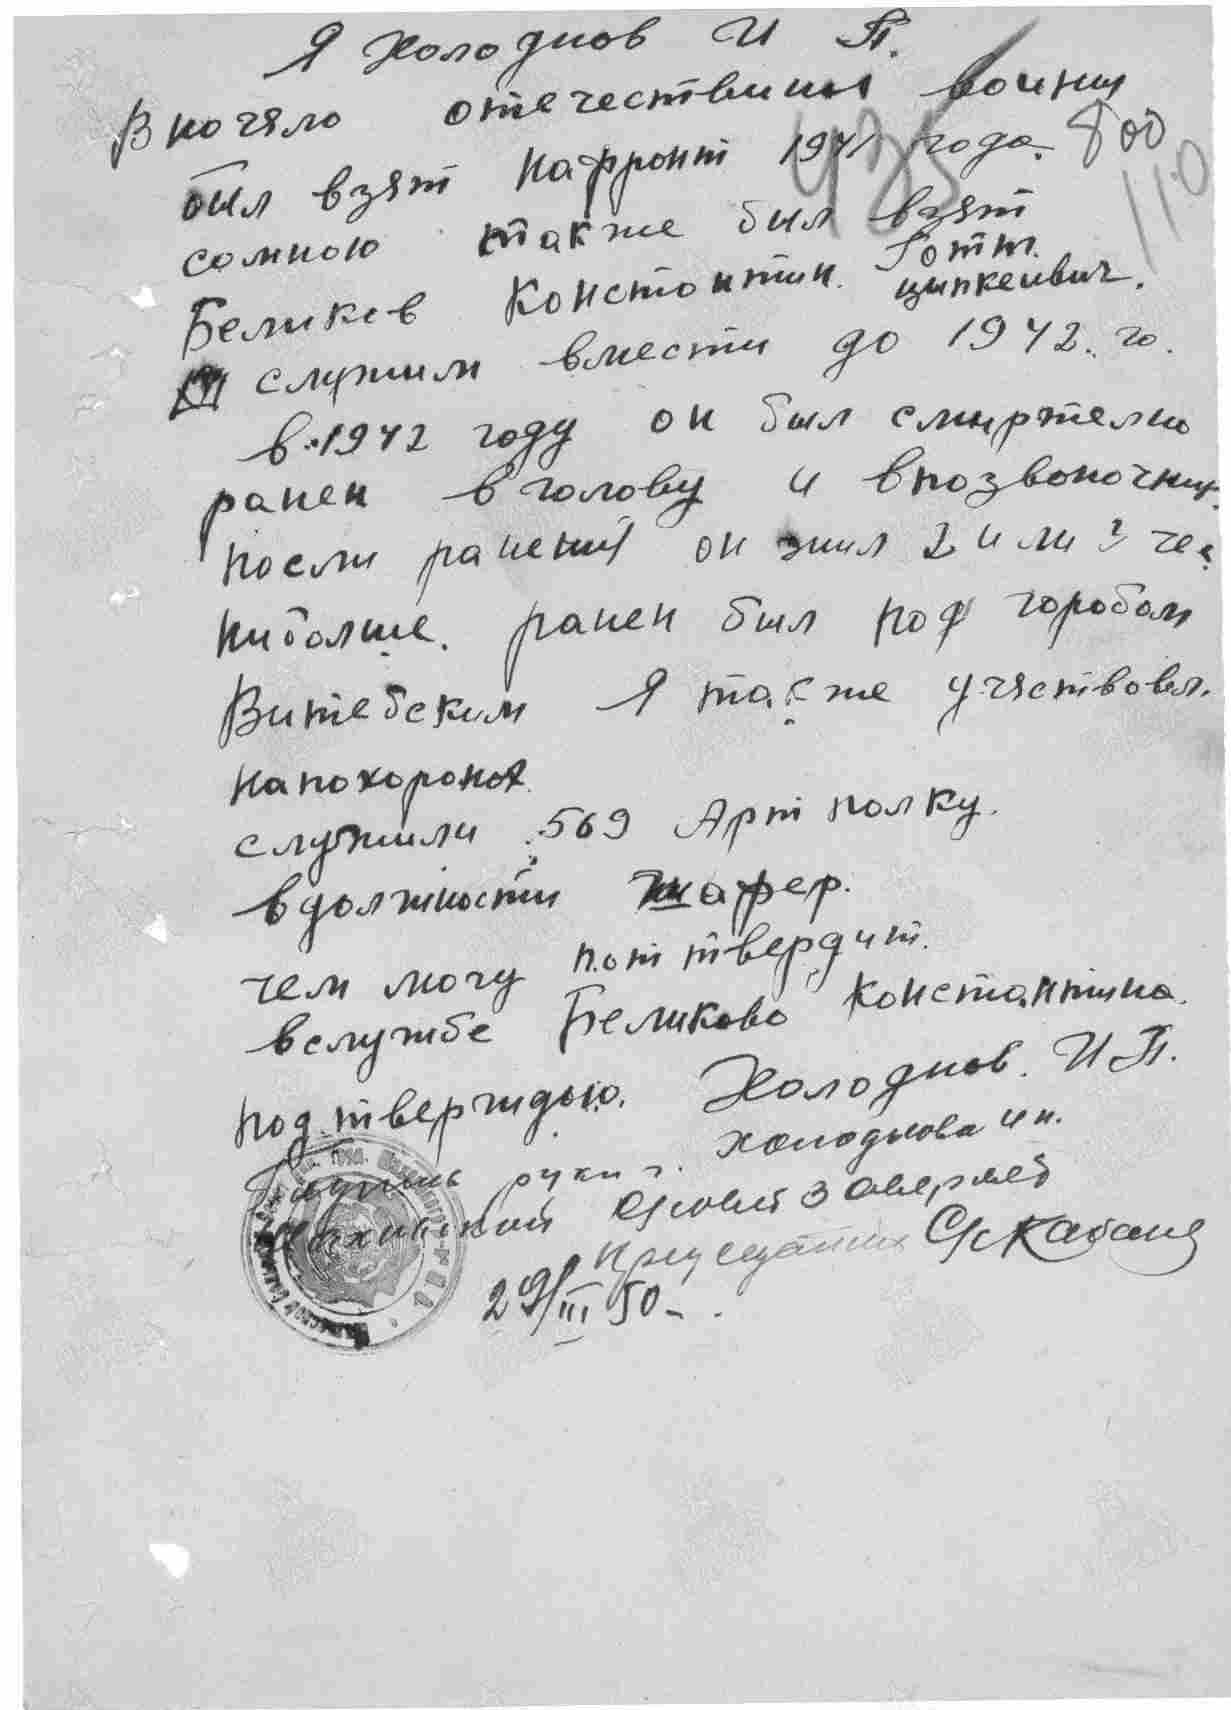 Я Холоднов И П.
В почяло отечествиных воины
был взят нафронт 1941 года. 800
110
сомною также был взят
Беликов Констонтин. Готт.
цынкеивич.
служили вмести до 1942. го.
в.1942 году он был смиртелно
ранен в голову и впозвоночник
посли ранений он жил 2 или 3 чеа
ниболше. ранен был под горобом
Витебским Я также учяствовал.
напохоронох
служили 569 Арт полку.
вдолжности шафер.
чем могу пот твердит.
вслужбе Беликово Константина.
подтвержидою. Холоднов. И П.
Подпись руки г. Холоднова И П.
С/совет заверяет
Председатель С/с Кабанц
29/III 50-.